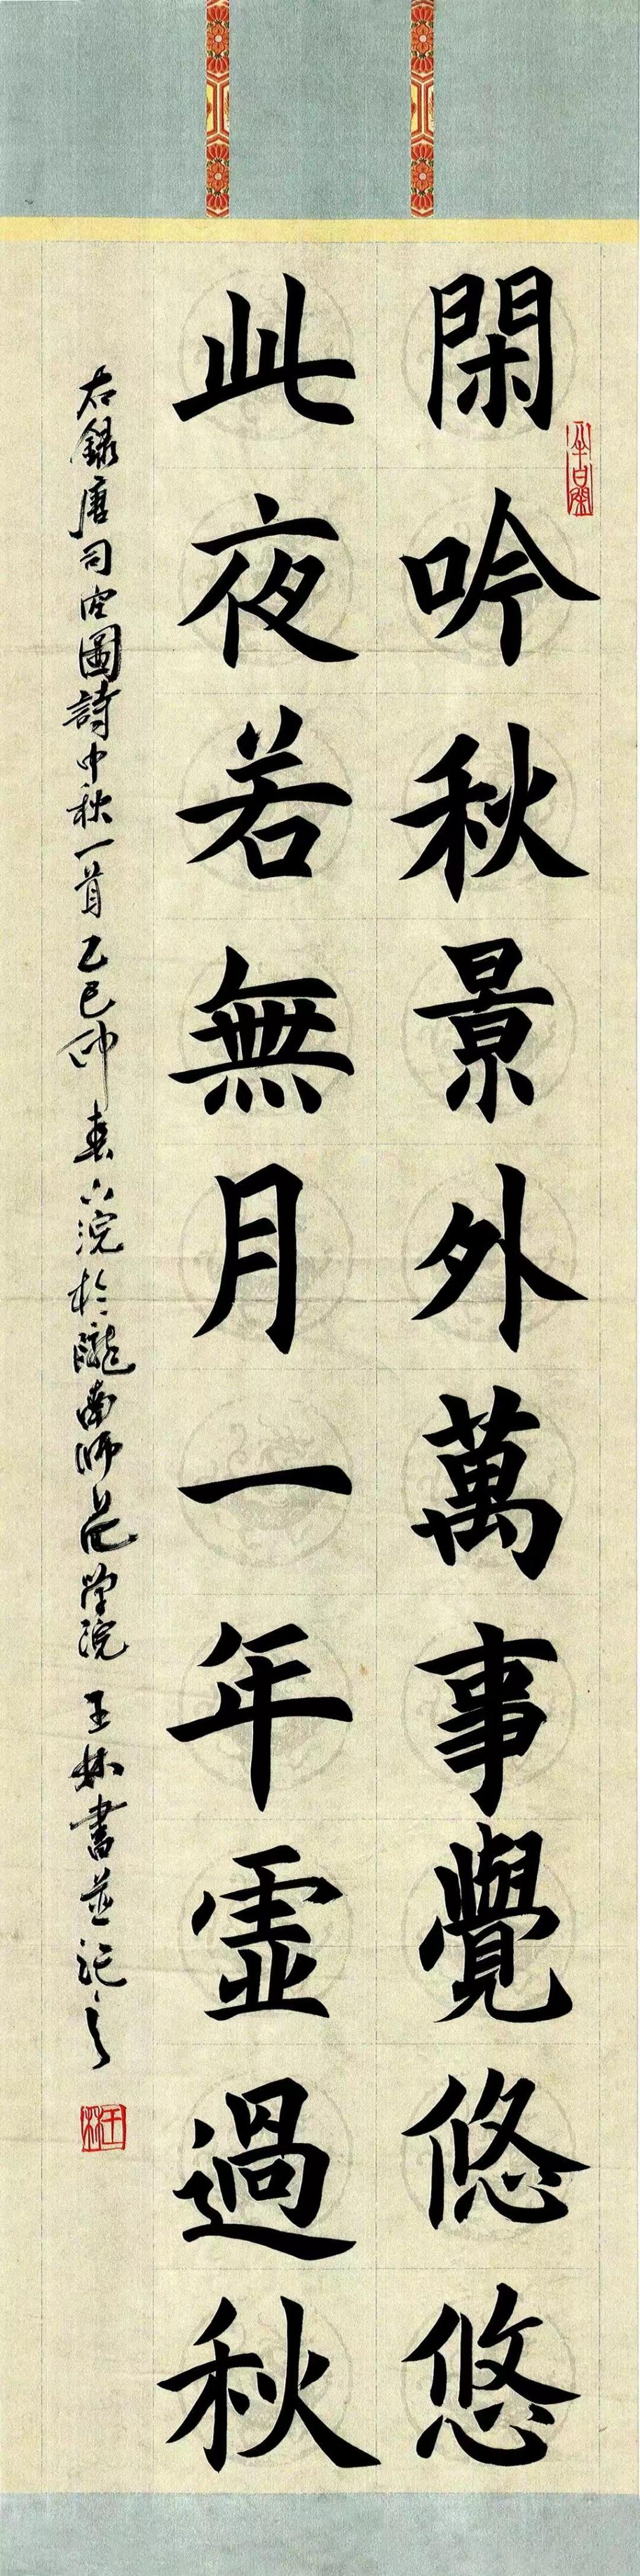 閑吟秋景外萬事覺悠悠
此夜若無月一年虛過秋
右錄唐司空圖詩中秋一首乙巳仲春 於隴南師范学院王林書並記之
王林